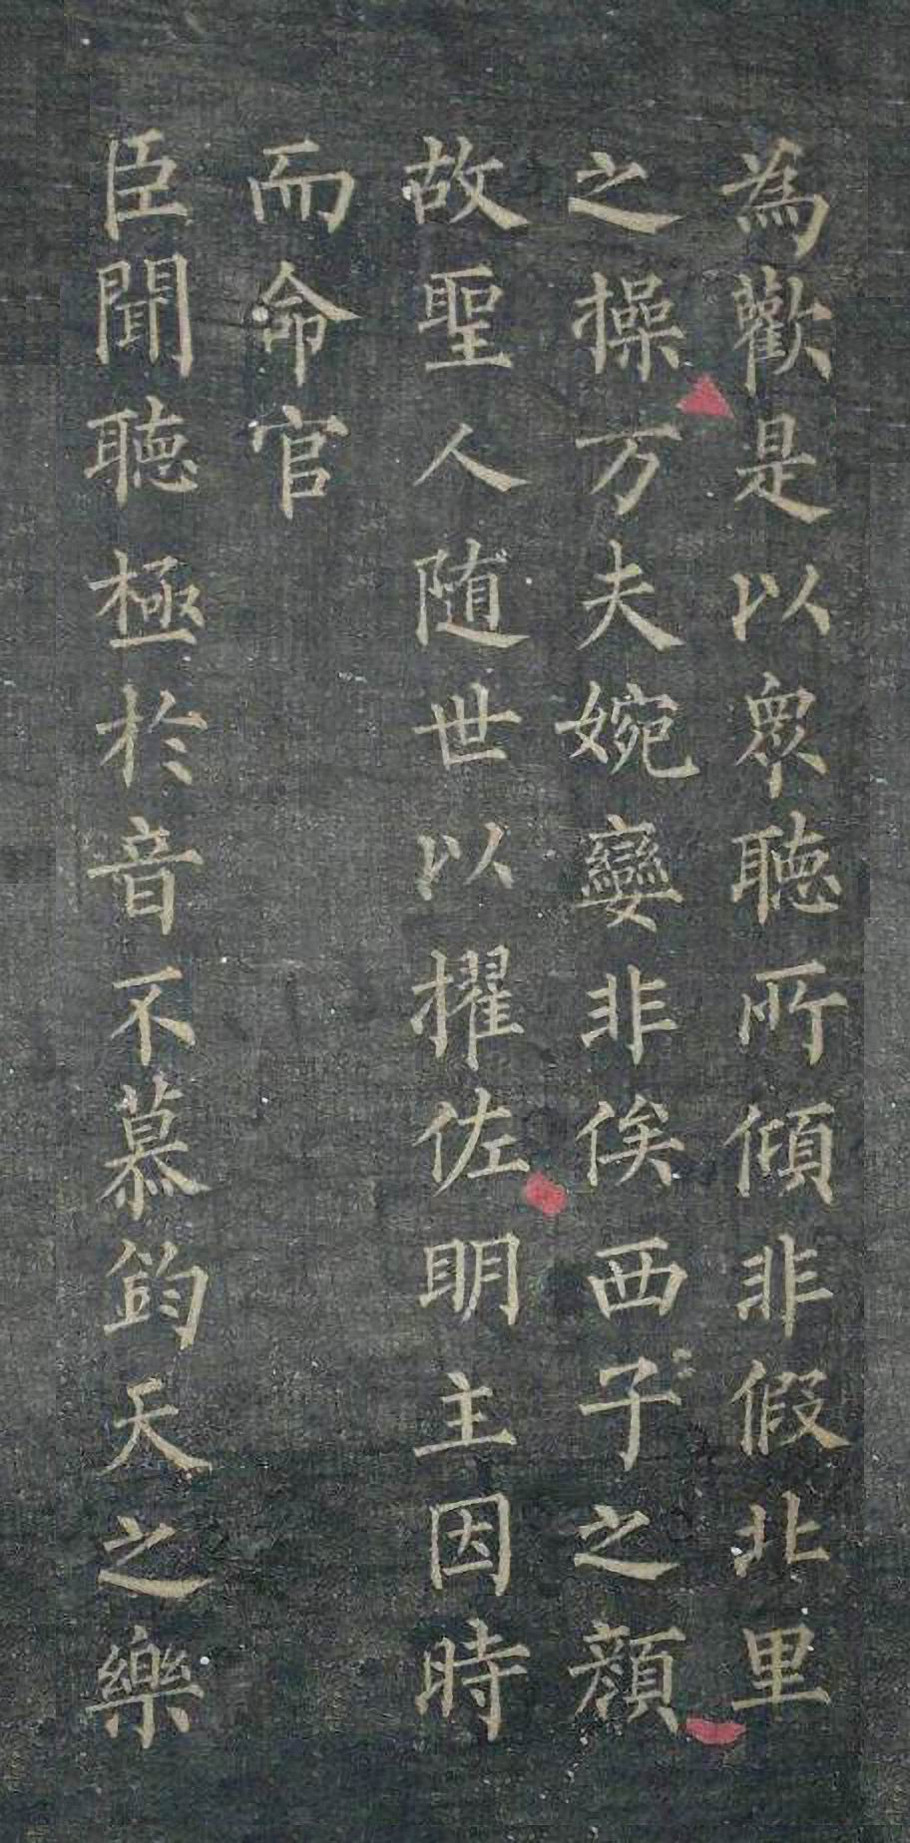 為歡是以衆聽所傾非假北里
之操万夫婉孌非俟西子之顔
故聖人随世以擢佐明主因時
而命官
臣聞聴極於音不慕鈞天之樂